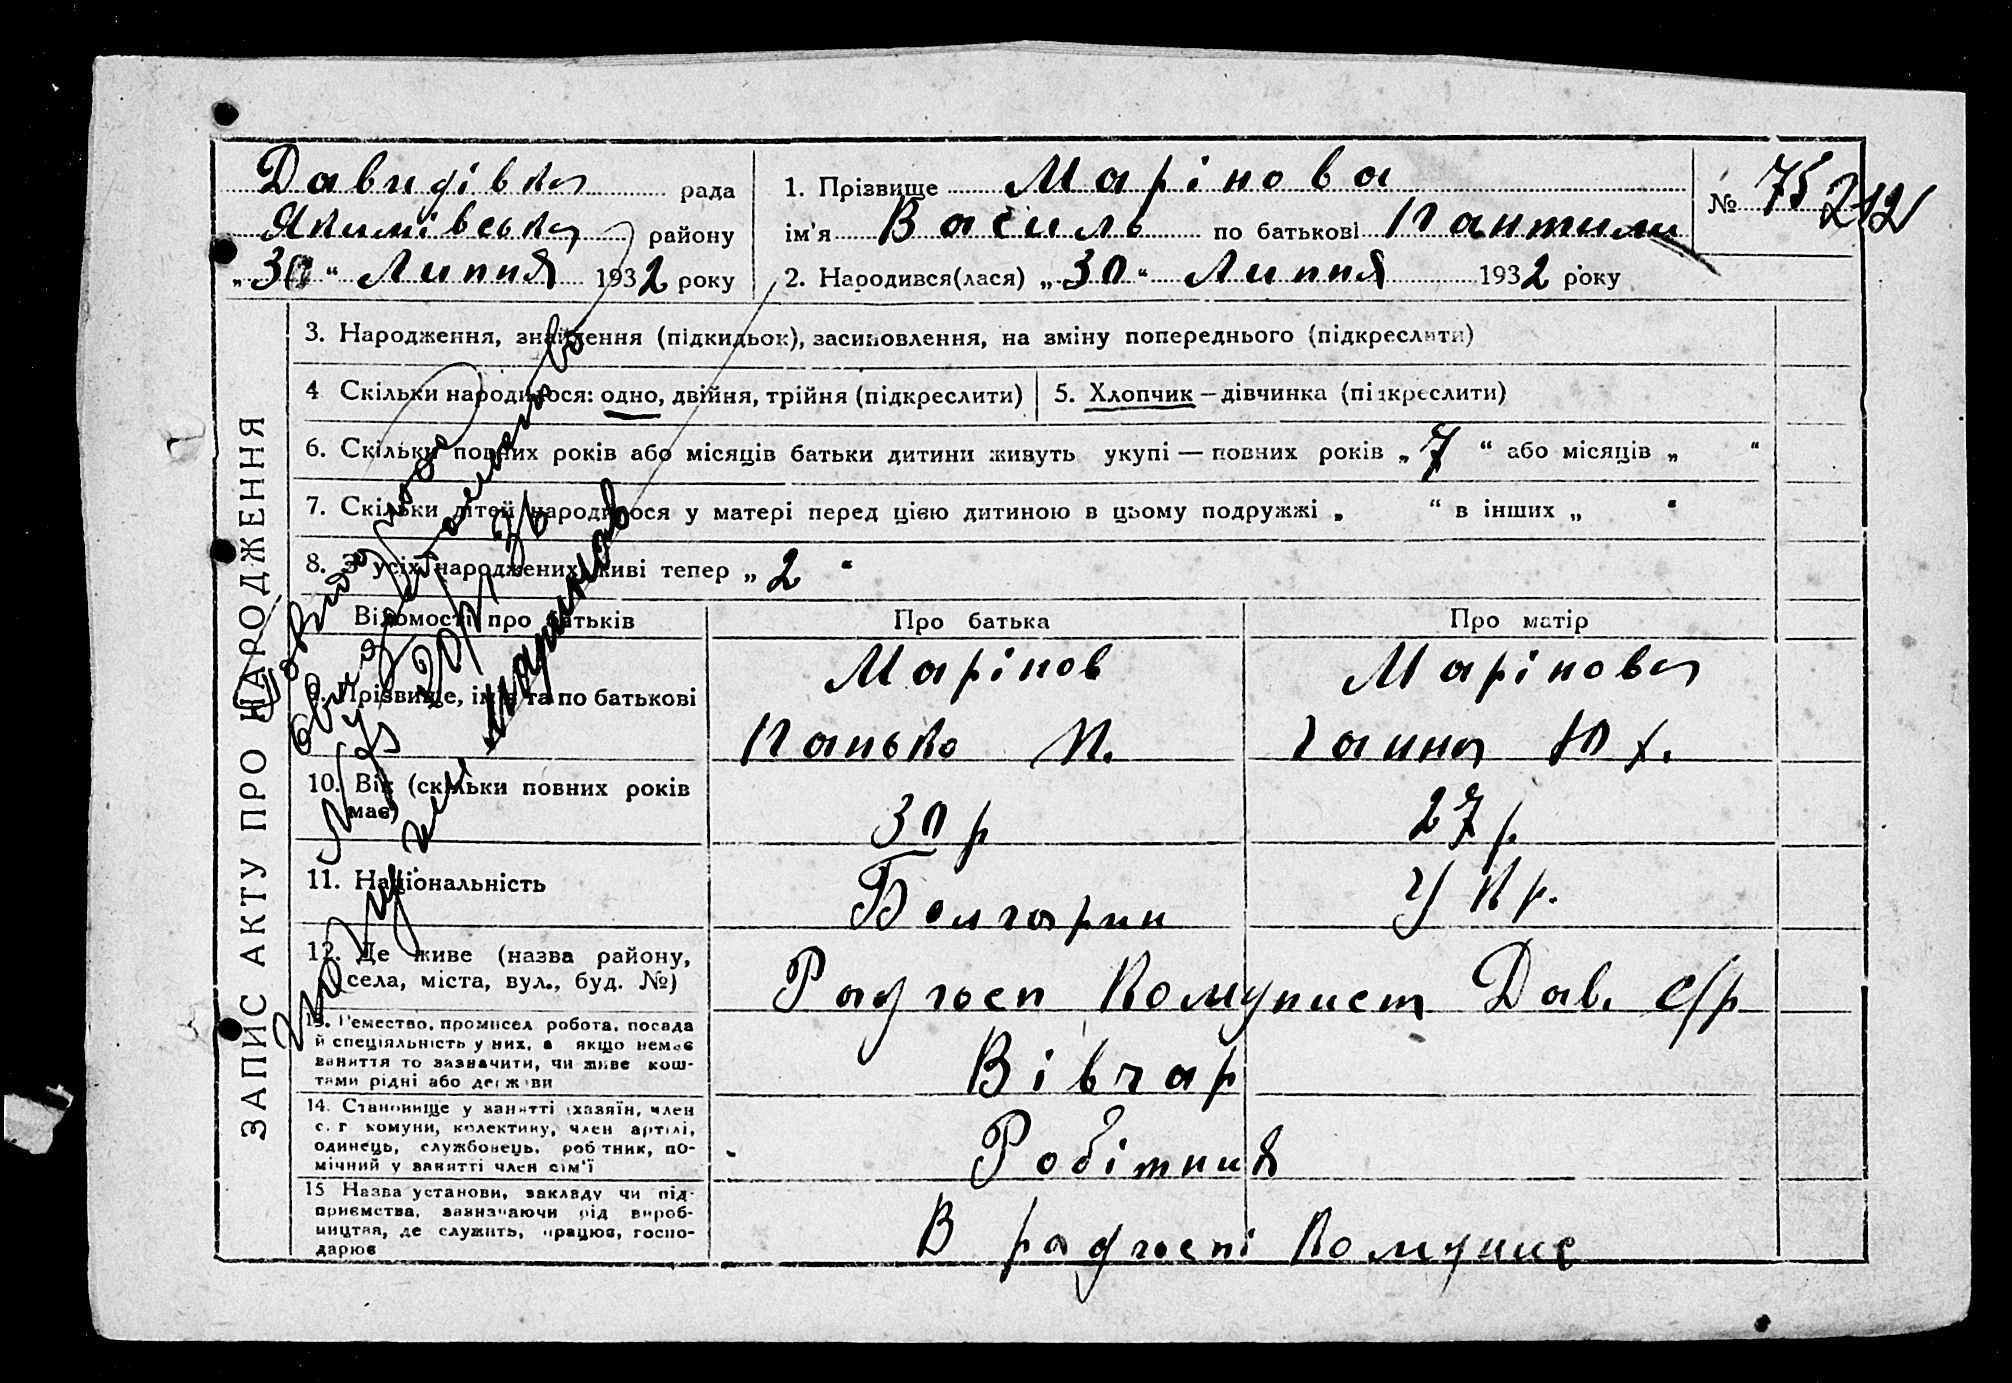 Давидівка рада
Якимівська району
„30“ Липня 1932 року
1. Прізвище Марінова
ім'я Василь по батькові Пантили
2. Народився(лася) „30“ Липня 1932 року
№ 75 212
ЗАПИС АКТУ ПРО НАРОДЖЕННЯ
3. Народження, знайдення (підкидьок), засиновлення, на зміну попереднього (підкреслити)
4 Скільки народилося: одно, двійня, трійня (підкреслити)
5. Хлопчик – дівчинка (підкреслити)
6. Скільки повних років або місяців батьки дитини живуть укупі — повних років „7“ або місяців „ “
7. Скільки дітей народилося у матері перед цією дитиною в цьому подружжі „ “ в інших „ “
8. З усіх народжених живі тепер „2“
Відомості про батьків
Про батька
Про матір
9. Прізвище, ім'я та по батькові
Марінов
Панько П.
Марінова
Ганна Ю Х.
10. Вік (скільки повних років має)
30 р
27 р.
11. Національність
Болгарин
Укр.
12. Де живе (назва району,
села, міста, вул., буд. №)
Радгосп Комунист Дав. с/р
13. Ремество, промисел робота, посада
й спеціяльність у них, а якщо немає
заняття то зазначити, чи живе кош-
тами рідні або держави
Вівчар
14. Становище у занятті (хазяїн, член
с. г комуни, колективу, член артілі,
одинець, службовець, робітник, по-
мічний у занятті член сім'ї
Робітник
15 Назва установи, закладу чи під-
приємства, зазначаючи рід вироб-
ництва, де служить, працює, госпо-
дарює
В радгоспі Комунис
20/VI 36
получил Маринов